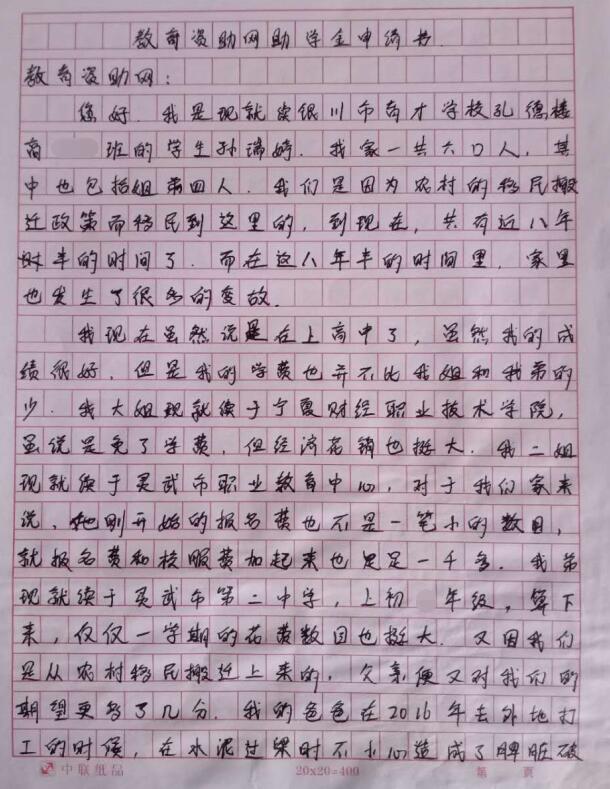 教育资助网助学金申请书.
教育资助网:
您好.我是现就读银川市育才学校孔德楼
高 班的学生孙瑞婷.我家一共六口人,其
中也包括姐弟四人.我们是因为农村的移民搬
迁政策而移民到这里的,到现在,共有近八年
半的时间了.而在这八年半的时间里,家里
也发生了很多的变故.
我现在虽然说是在上高中了,虽然我的成
绩很好.但是我的学费也并不比我姐和我弟的
少.我大姐现就读于宁夏财经职业技术学院,
虽说是免了学费,但经济花销也挺大.我二姐
现就读于灵武市职业教育中心,对于我们家来
说,她刚开始的报名费也不是一笔小的数目,
就报名费和校服费加起来也足足一千多.我弟
现就读于灵武市第二中学,上初 年级,算下
来,仅仅一学期的花费数目也挺大.又因我们
是从农村移民搬迁上来的,父亲便又对我们的
期望更多了几分.我的爸爸在2016年去外地打
工的时候,在水泥过梁时不小心造成了脾脏破
中联纸品 20x20=400 第 页